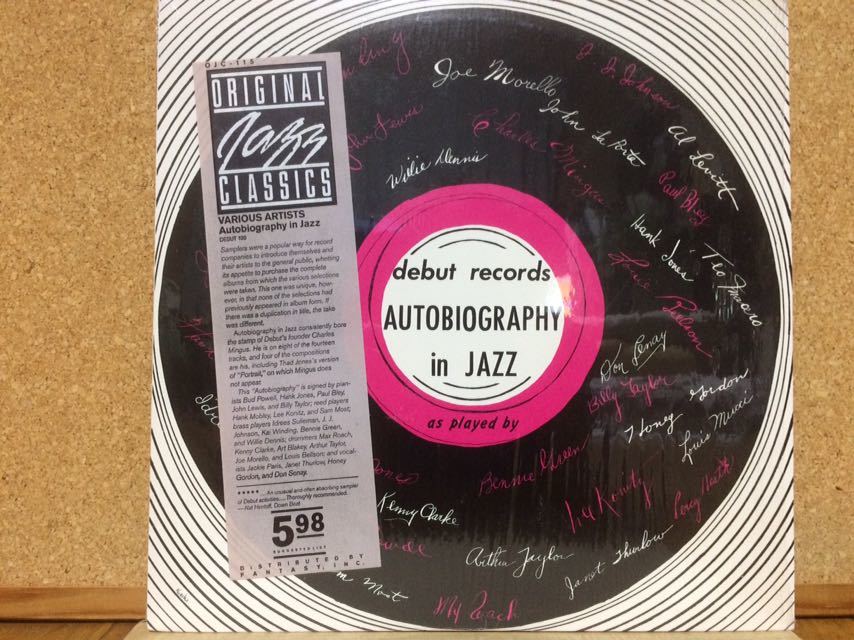 OJC-115
ORIGINAL
Jazz
CLASSICS
VARIOUS ARTISTS
Autobiography in Jazz
DEBUT 198
Samplers were a popular way for record
companies to introduce themselves and
their artists to the general public, whetting
its appetite to purchase the complete
albums from which the various selections
were taken. This one was unique, how-
ever, in that none of the selections had
previously appeared in album form. If
there was a duplication in title, the take
was different.
Autobiography in Jazz consistently bore
the stamp of Debut's founder Charles
Mingus. He is on eight of the fourteen
tracks, and four of the compositions
are his, including Thad Jones's version
of "Portrait," on which Mingus does
not appear.
This "Autobiography" is signed by pian-
ists Bud Powell, Hank Jones, Paul Bley,
John Lewis, and Billy Taylor; reed players
Hank Mobley, Lee Konitz, and Sam Most;
brass players Idrees Sulieman, J. J.
Johnson, Kai Winding, Bennie Green,
and Willie Dennis; drummers Max Roach,
Kenny Clarke, Art Blakey, Arthur Taylor,
Joe Morello, and Louis Bellson; and vocal-
ists Jackie Paris, Janet Thurlow, Honey
Gordon, and Don Senay.
★★★★★ An unusual and often absorbing sampler
of Debut activities.... Thoroughly recommended.
—Nat Hentoff, Down Beat
5.98
SUGGESTED LIST
DISTRIBUTED BY
FANTASY, INC.
Joe Morello
J. J. Johnson
John La Porta
Al Levitt
Lewis
Charlie Mingus
Willie Dennis
Paul Bley
Hank Jones
Teo Macero
Louie Bellson
debut records
AUTOBIOGRAPHY
in JAZZ
as played by
Don Senay
Billy Taylor
Honey Gordon
Louis Mucci
Bennie Green
Jones
Lee Konitz
Percy Heath
Kenny Clarke
Arthur Taylor
Janet Thurlow
Most
Max Roach